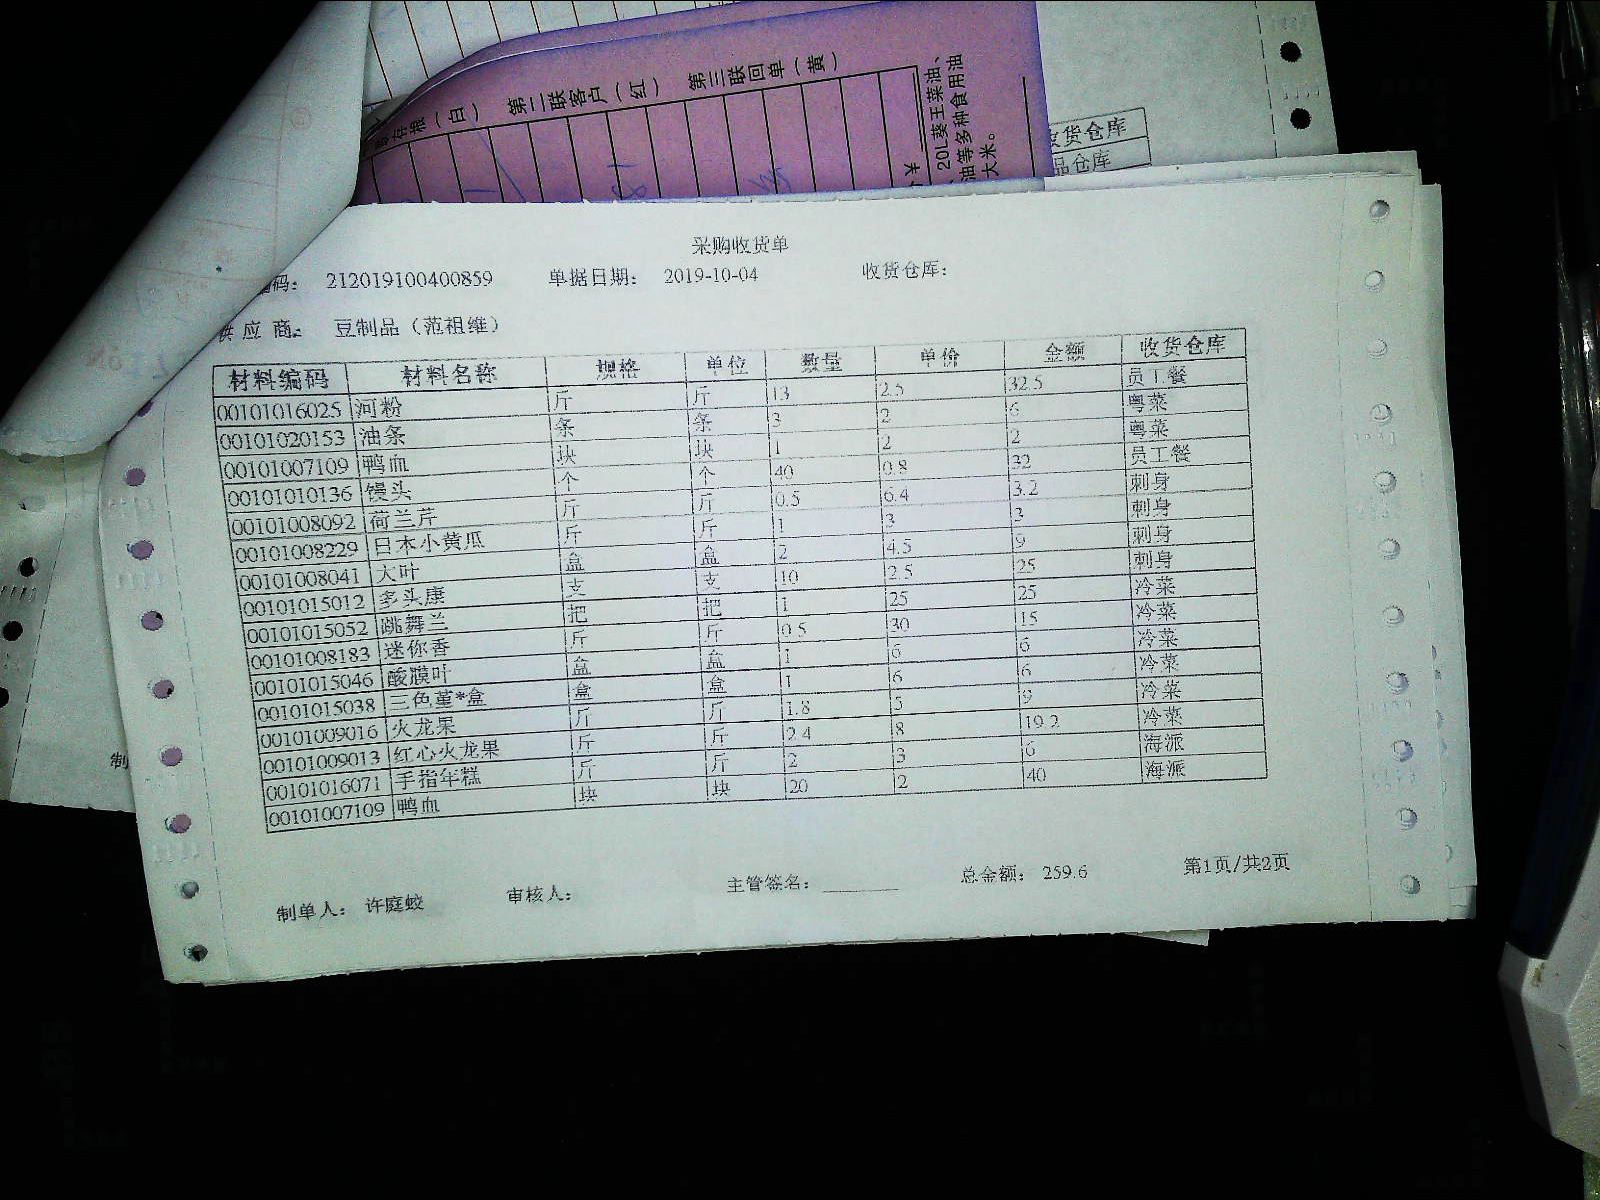 存根（白） 第二联客户（红） 第三联回单（黄）
20L葵王菜油、
油等多种食用油
大米。
收货仓库
品仓库
采购收货单
码： 212019100400859 单据日期： 2019-10-04 收货仓库：
供应商： 豆制品（范祖维）
材料编码 材料名称 规格 单位 数量 单价 金额 收货仓库
00101016025 河粉 斤 斤 13 2.5 32.5 员工餐
00101020153 油条 条 条 3 2 6 粤菜
00101007109 鸭血 块 块 1 2 2 粤菜
00101010136 馒头 个 个 40 0.8 32 员工餐
00101008092 荷兰芹 斤 斤 0.5 6.4 3.2 刺身
00101008229 日本小黄瓜 斤 斤 1 3 3 刺身
00101008041 大叶 盒 盒 2 4.5 9 刺身
00101015012 多头康 支 支 10 2.5 25 刺身
00101015052 跳舞兰 把 把 1 25 25 冷菜
00101008183 迷你香 斤 斤 0.5 30 15 冷菜
00101015046 酸膜叶 盒 盒 1 6 6 冷菜
00101015038 三色堇*盒 盒 盒 1 6 6 冷菜
00101009016 火龙果 斤 斤 1.8 5 9 冷菜
00101009013 红心火龙果 斤 斤 2.4 8 19.2 冷菜
00101016071 手指年糕 斤 斤 2 3 6 海派
00101007109 鸭血 块 块 20 2 40 海派
制单人： 许庭蛟 审核人： 主管签名： 总金额： 259.6 第1页/共2页
制